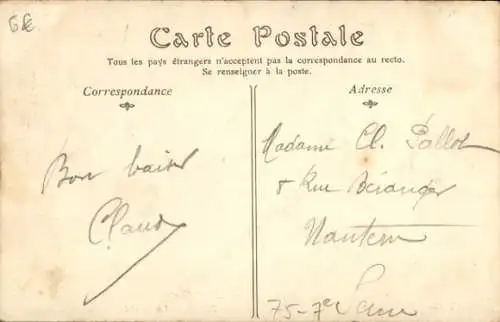 6€
Carte Postale
Tous les pays étrangers n'acceptent pas la correspondance au recto.
Se renseigner à la poste.
Correspondance
Adresse
Bon baiser
Claud
Madame Cl. Pallot
8 Rue Béranger
Nanterre
Seine
75-7e